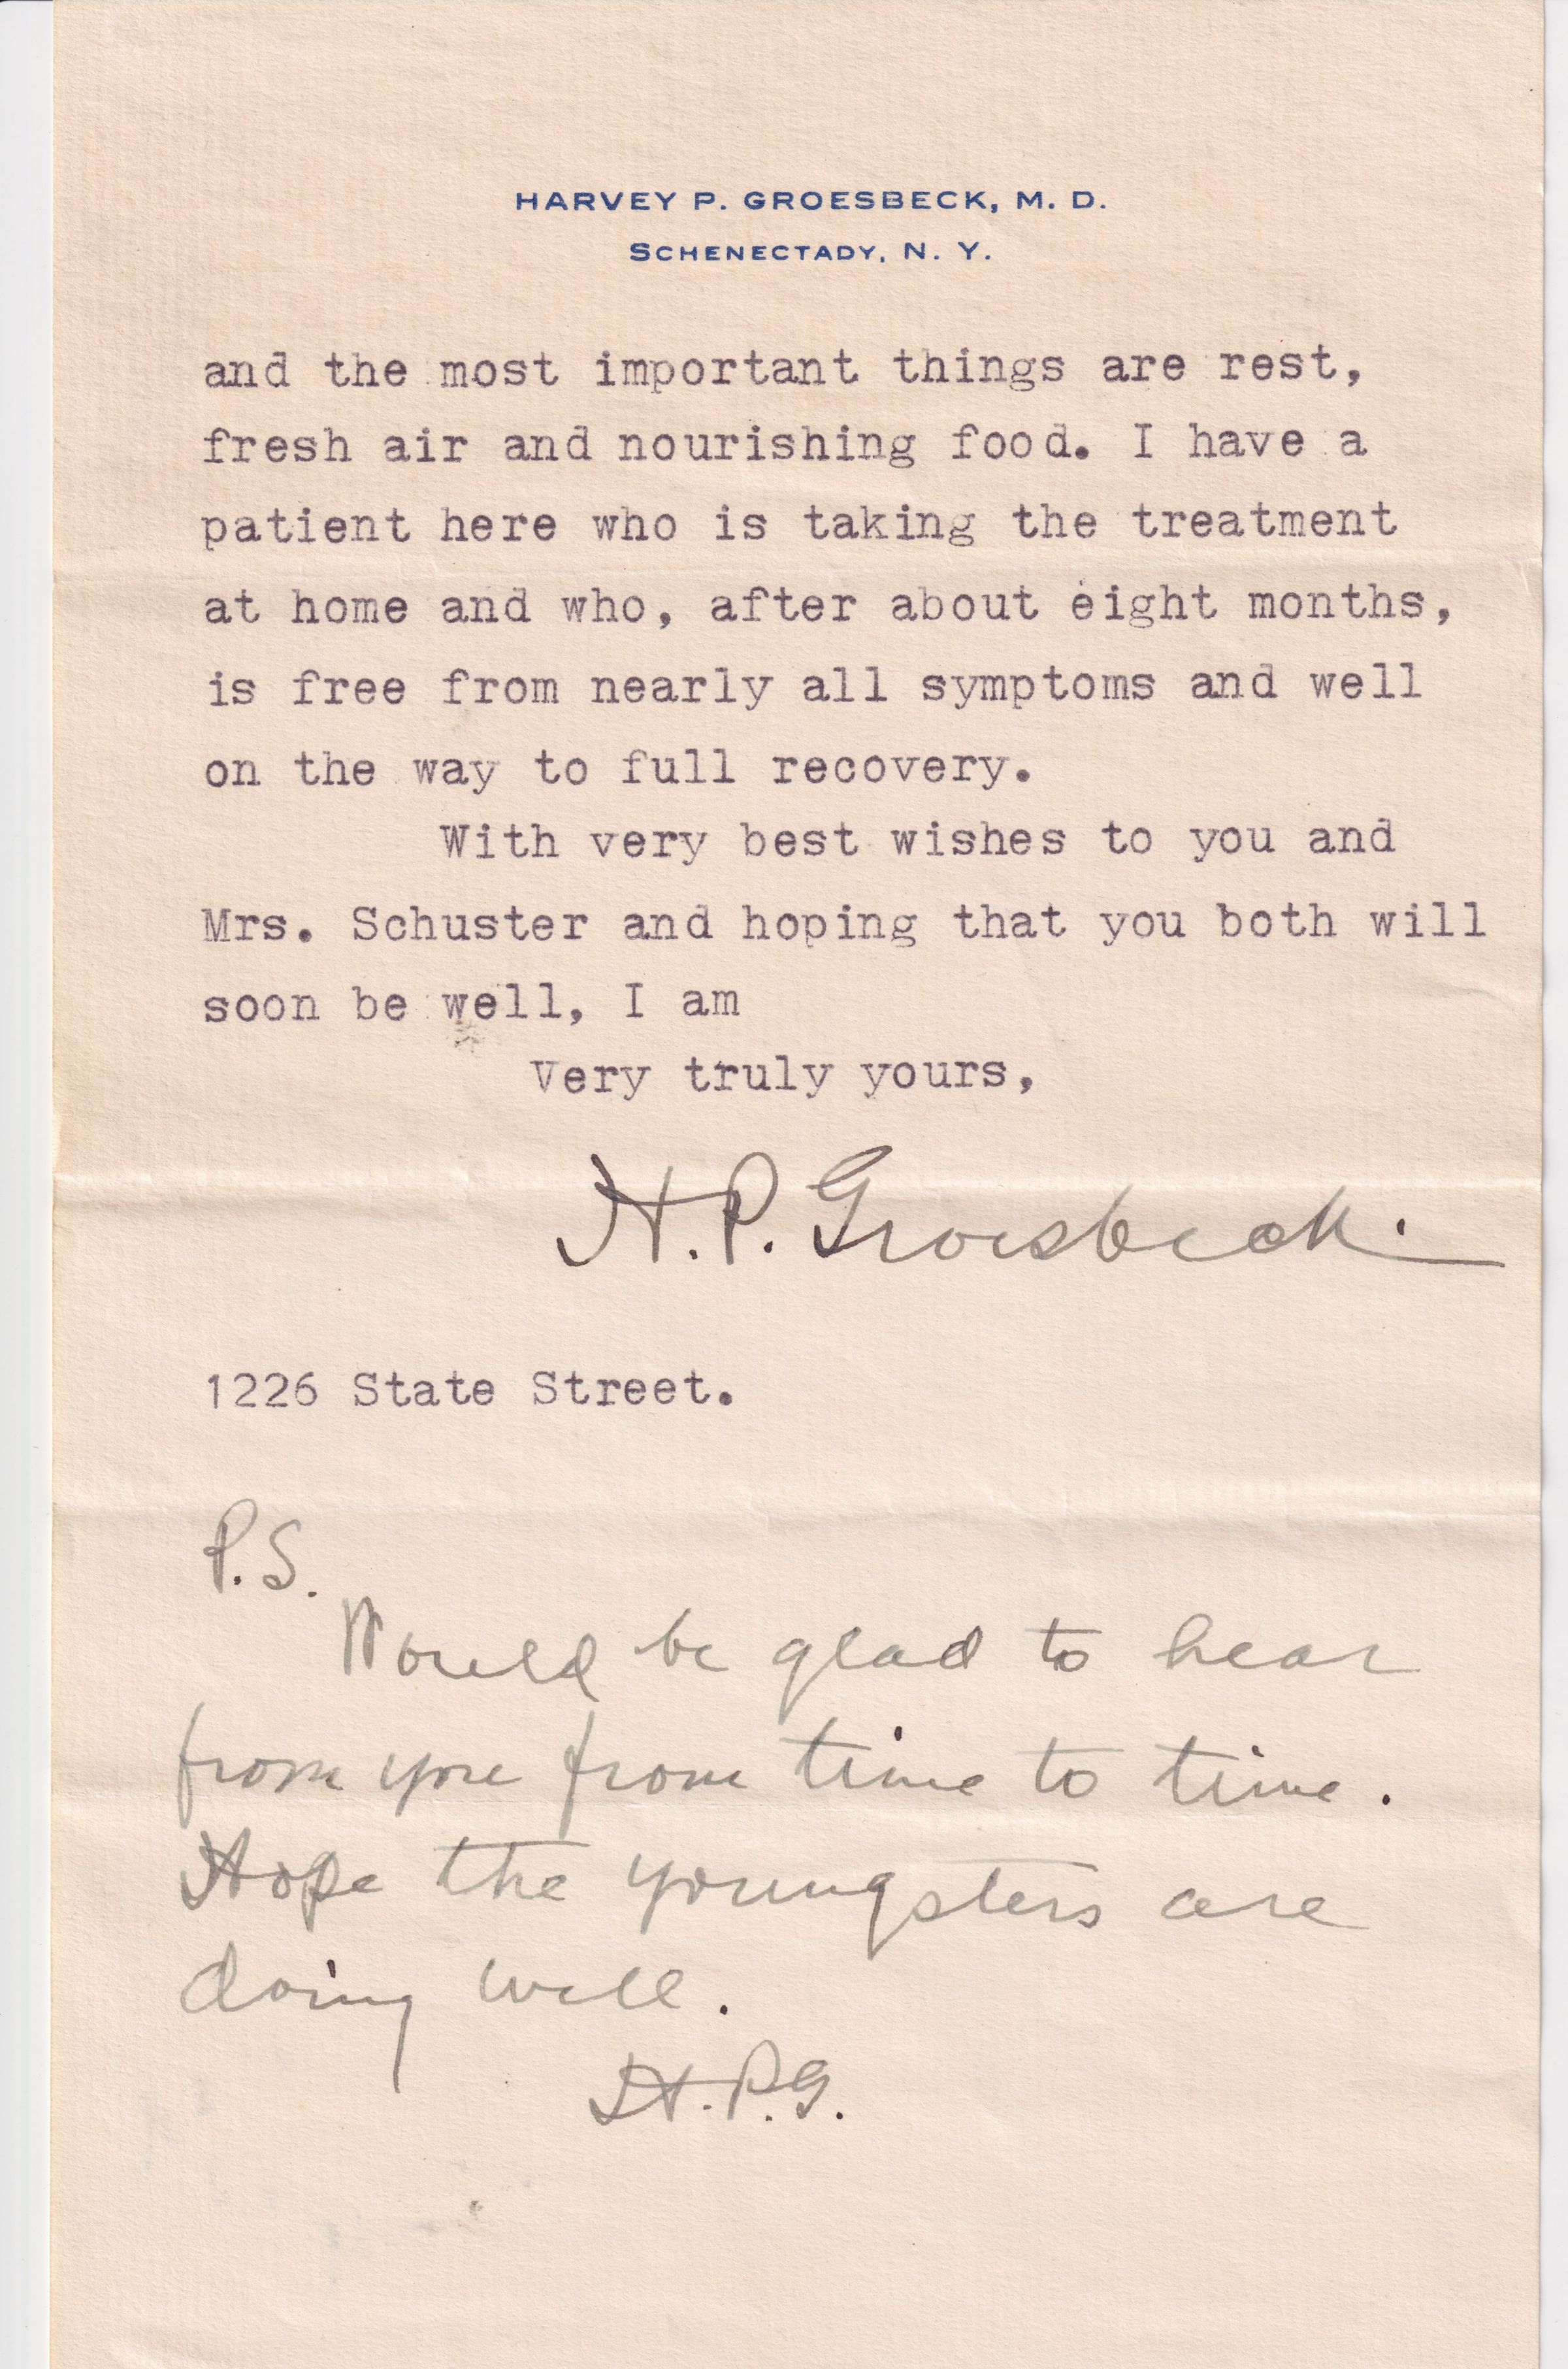 HARVEY P. GROESBECK, M. D.
SCHENECTADY, N. Y.
and the most important things are rest,
fresh air and nourishing food. I have a
patient here who is taking the treatment
at home and who, after about eight months,
is free from nearly all symptoms and well
on the way to full recovery.
With very best wishes to you and
Mrs. Schuster and hoping that you both will
soon be well, I am
Very truly yours,
H. P. Groesbeck.
1226 State Street.
P.S.
Would be glad to hear
from you from time to time.
Hope the youngsters are
doing well.
H.P.G.